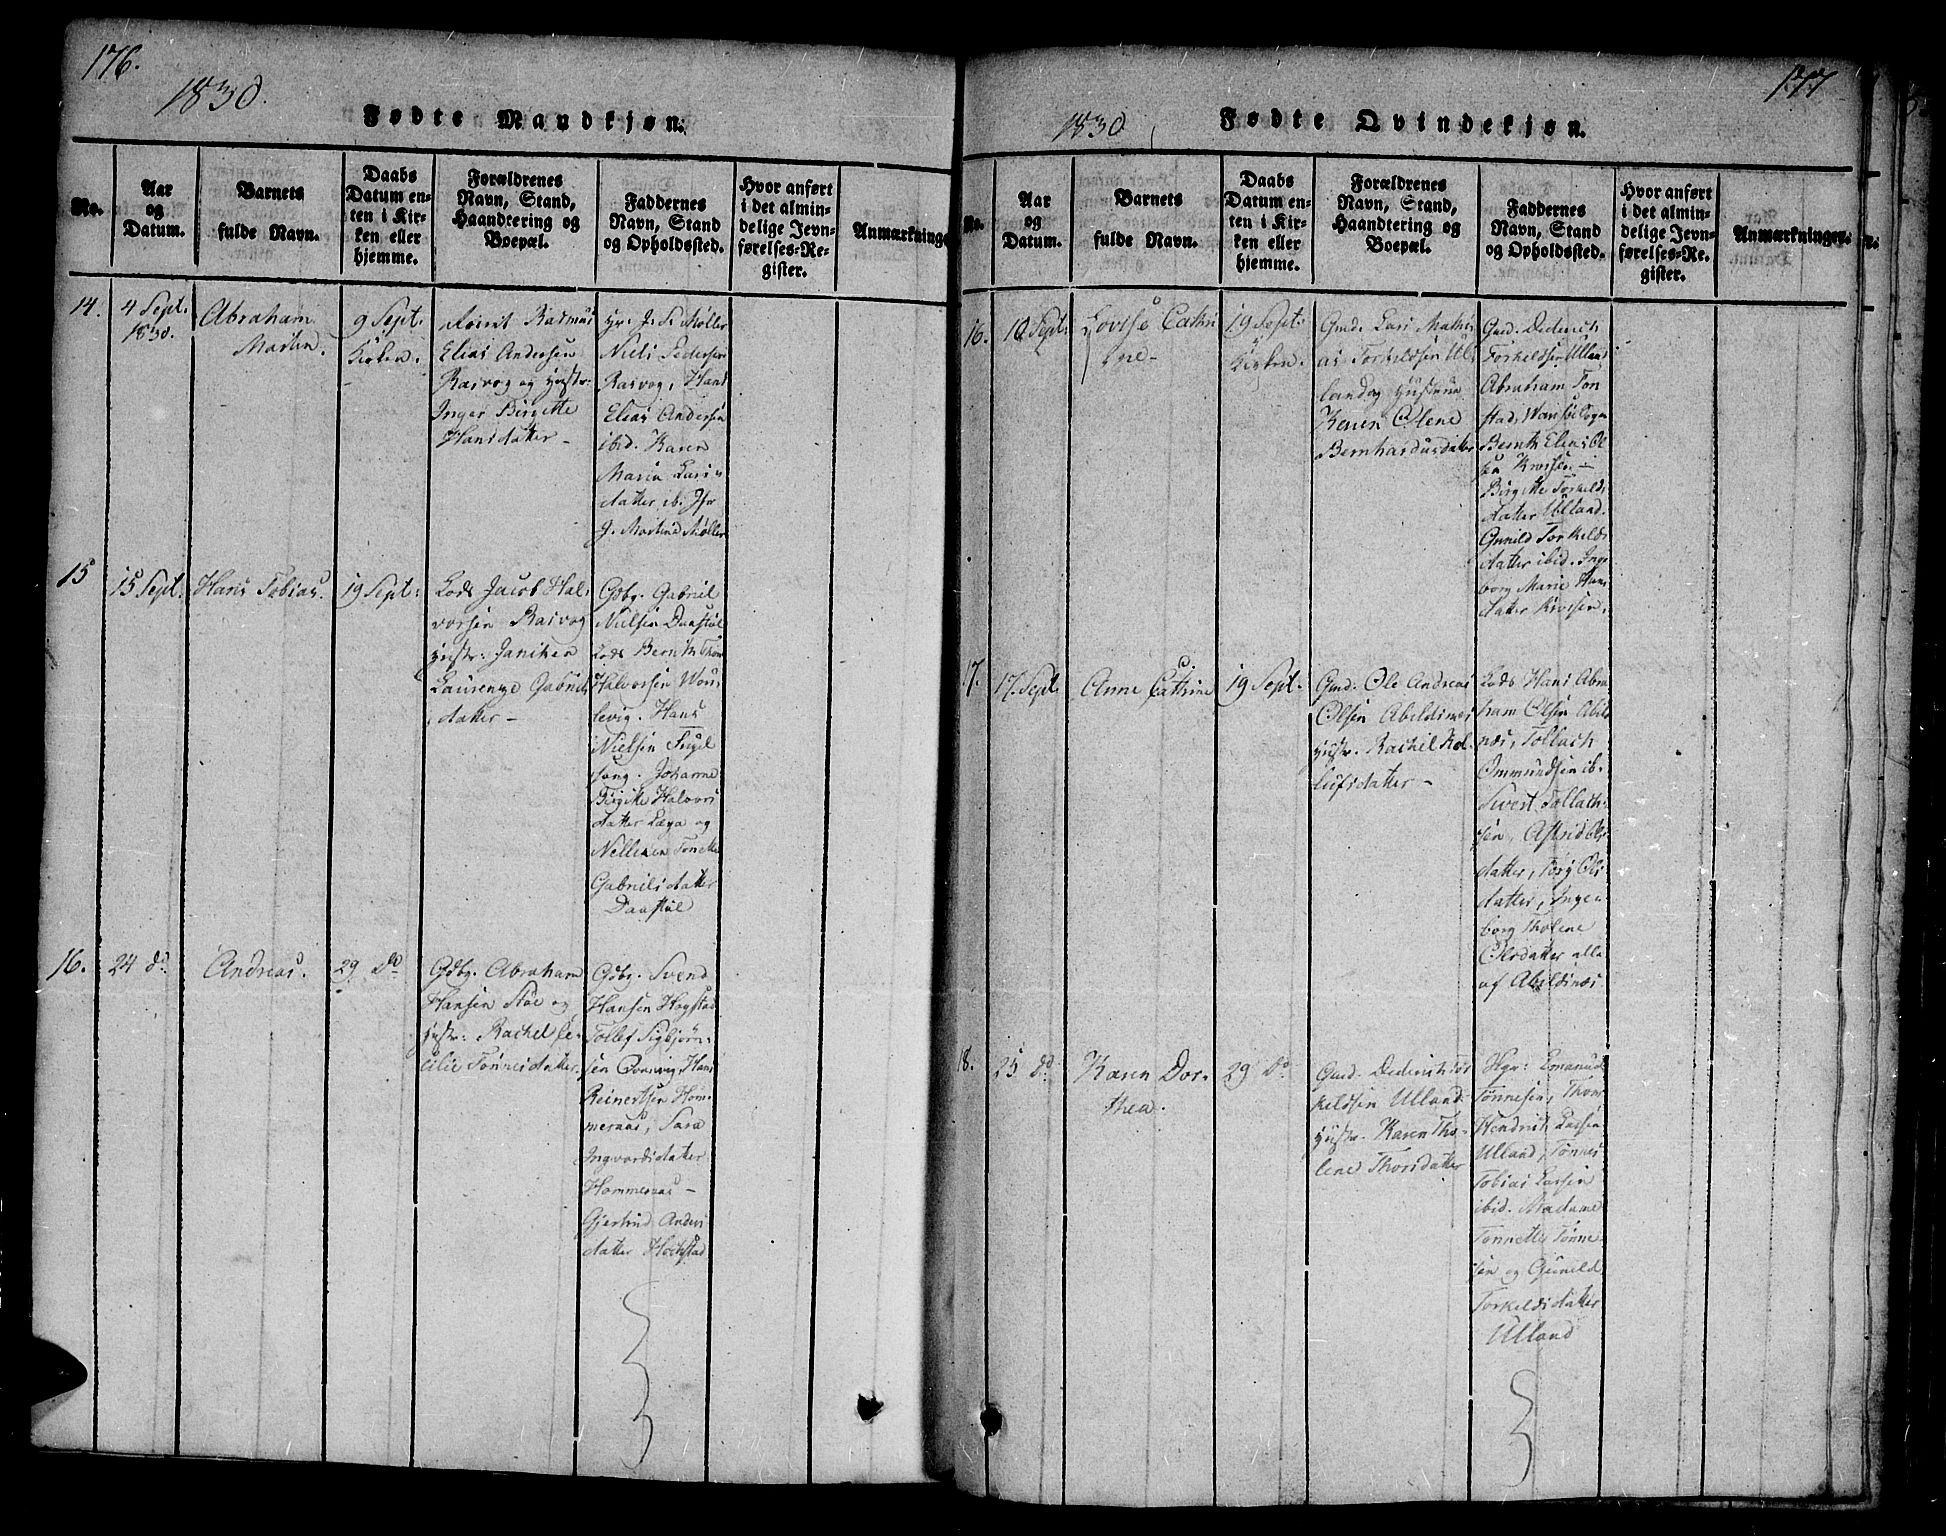 176.
1830.
Fødte Mandkjøn.
No.
Aar
og
Datum.
Barnets
fulde Navn.
Daabs
Datum en-
ten i Kir-
ken eller
hjemme.
Forældrenes
Navn, Stand,
Haandtering og
Boepæl.
Faddernes
Navn, Stand
og Opholdssted.
Hvor anført
i det almin-
delige Jevn-
førelses-Re-
gister.
Anmærkninge
14.
4 Sept.
1830.
Abraham
Martin.
9 Sept.
Kirken.
Rasmus
Elias Andersen
Rasvog og Hustr:
Inger Birgitte
Hansdatter -
Hr. J. S. Møller
Niels Pedersen
Rasvog, Hans
Elias Andersen
ibid. Karen
Maria Lars-
datter ib. Jfr
J. Martine Møller
15
15 Sept.
Hans Tobias.
19 Sept:
Lods Jacob Hal-
vorsen Rasvog
Hustr: Janiken
Laurenze Gabriels
datter -
Gdbg. Gabriel
Nielsen Daastøl
Lods Bernth Thom
Halvorsen Wou-
levig. Hans
Nielsen Fugel
sang. Johanne
Birgitte Halvors
datter Læga og
Nellinen Tonette
Gabrielsdatter
Daastøl
16.
24 do
Andreas.
29 do
Gdbg. Abraham
Hansen Stoe og
Hustr: Rachel Ce-
cilie Tønnesdatter
Gdbg. Svend
Hansen Hogstad
Tollef Sigbjørn-
sen Hans
Reinertsen Hom-
meraas, Sara
Ingvordsdatter
Hommeraas -
Gjertrud Anders
datter Hochstad
177
1830
Fødte Qvindekjøn.
No.
Aar
og
Datum.
Barnets
fulde Navn.
Daabs
Datum en-
ten i Kir-
ken eller
hjemme.
Forældrenes
Navn, Stand,
Haandtering og
Boepæl.
Faddernes
Navn, Stand
og Opholdssted.
Hvor anført
i det almin-
delige Jevn-
førelses-Re-
gister.
Anmærkninger.
16.
10 Sept.
Lovise Cathri
ne -
19 Sept:
Kirken.
Gmd. Lars Mathi
as Torkildsen Ul-
land og Hustrue
Karen Olene
Bernhardusdatter
Gmd. Dederich
Torkeldsen Ulland
Abraham Ton
stad, Wanse Sogn
Bernth Elias

Birgitte Torkelds
datter Ulland.
Gunild Torkelds
datter ibid. Inge
borg Marie Hans
datter
17.
17 Sept.
Anne Cathrine
19 Sept.
Gmd. Ole Andreas
Olsen Abildsnæs
Hustr. Rachel Rol-
lufsdatter -
Lods Hans Abra
ham Olsen Abilds
næs, Tollach
Ommundsen ib.
Sivert Tollach-
sen, Astrid Ols
datter, Torg Ols
datter, Inge-
borg Tholene
Olsdatter alle
af Abildsnæs
18.
25 do
Karen Dor-
thea.
29 do
Gmd. Dederich Tor
keldsen Ulland
Hustr. Karen Tho-
lene Thorsdatter
Hgr: Emanuel
Tønnesen, Thom
Hendrich Larsen
Ulland, Tønnes
Tobias Larsen
ibid. Madame
Tonnette Tønne-
sen og Gunild
Torkeldsdatter
Ulland